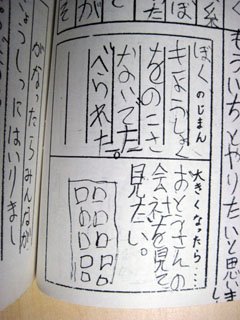 もういちどやりたいと思いまし
ぼくのじまん
きゅうしょく
をのこさ
ないでた
べられた。
大きくなったら……
おとうさんの
会社を見て
見たい。
がなったらみんなが
ょうしつにはいりまし